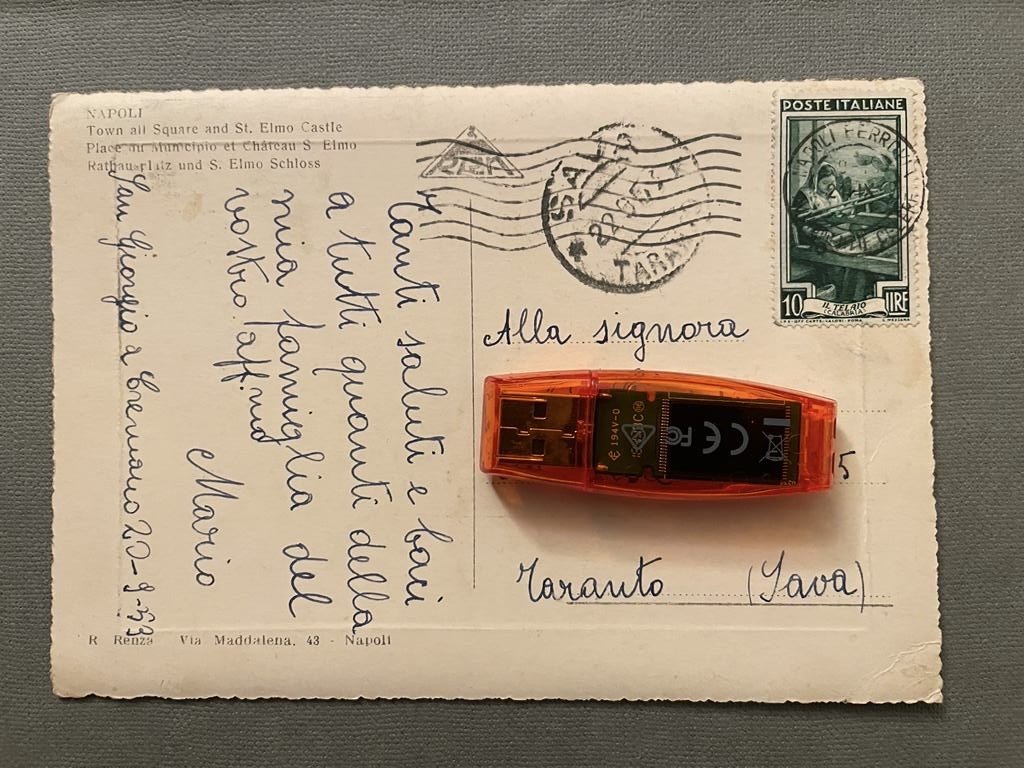 NAPOLI
Town all Square and St. Elmo Castle
Place du Municipio et Château S. Elmo
Rathausplatz und S. Elmo Schloss
San Giorgio a Cremano 20-9-53
Tanti saluti e baci
a tutti quanti della
mia famiglia del
vostro aff.mo
Mario
R. Renza Via Maddalena, 43 - Napoli
SAVA
TARA
POSTE ITALIANE
NAPOLI FERROVIA
10 LIRE
IL TELAIO
(CALABRIA)
Alla signora
94V-0
CE FC
5
Taranto (Sava)